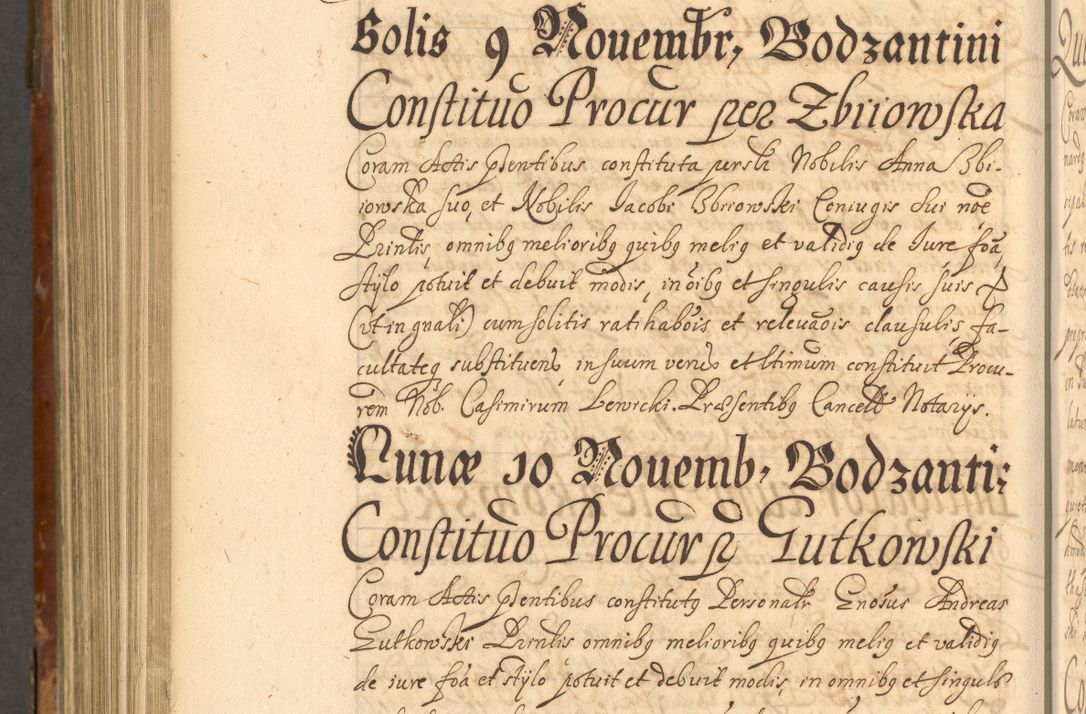 Solis 9 Nouembr, Bodzantini
Constituõ Procur per Zbiiowska
Coram Actis pñtibus constituta persłr Nobilis Anna Zbi-
iowska suo, et Nobilis Iacobi Zbiiowski Coniugis sui nõe
Principalis, omnibq melioribq quibq meliq et validiq de Iure, foã,
stylo potuit et debuit modis, in oibq et singulis causis suis
(vt in gnali) cum solitis ratihabõis et releuãois clausulis, fa-
cultateq substituendi, in suum verũ et ltimum constituit Procu-
rem Nob. Casimirum Lewicki. Præsentibq Cancell Notarijs.
Lunæ 10 Nouemb, Bodzanti:
Constituõ Procur p Gutkowski
Coram Actis pñtibus constitutq Personalr Gnosus Andreas
Gutkowski Prinlis omnibq melioribq quibq meliq et validiq
de iure foã et stylo potuit et debuit modis, in omnibq et singulis